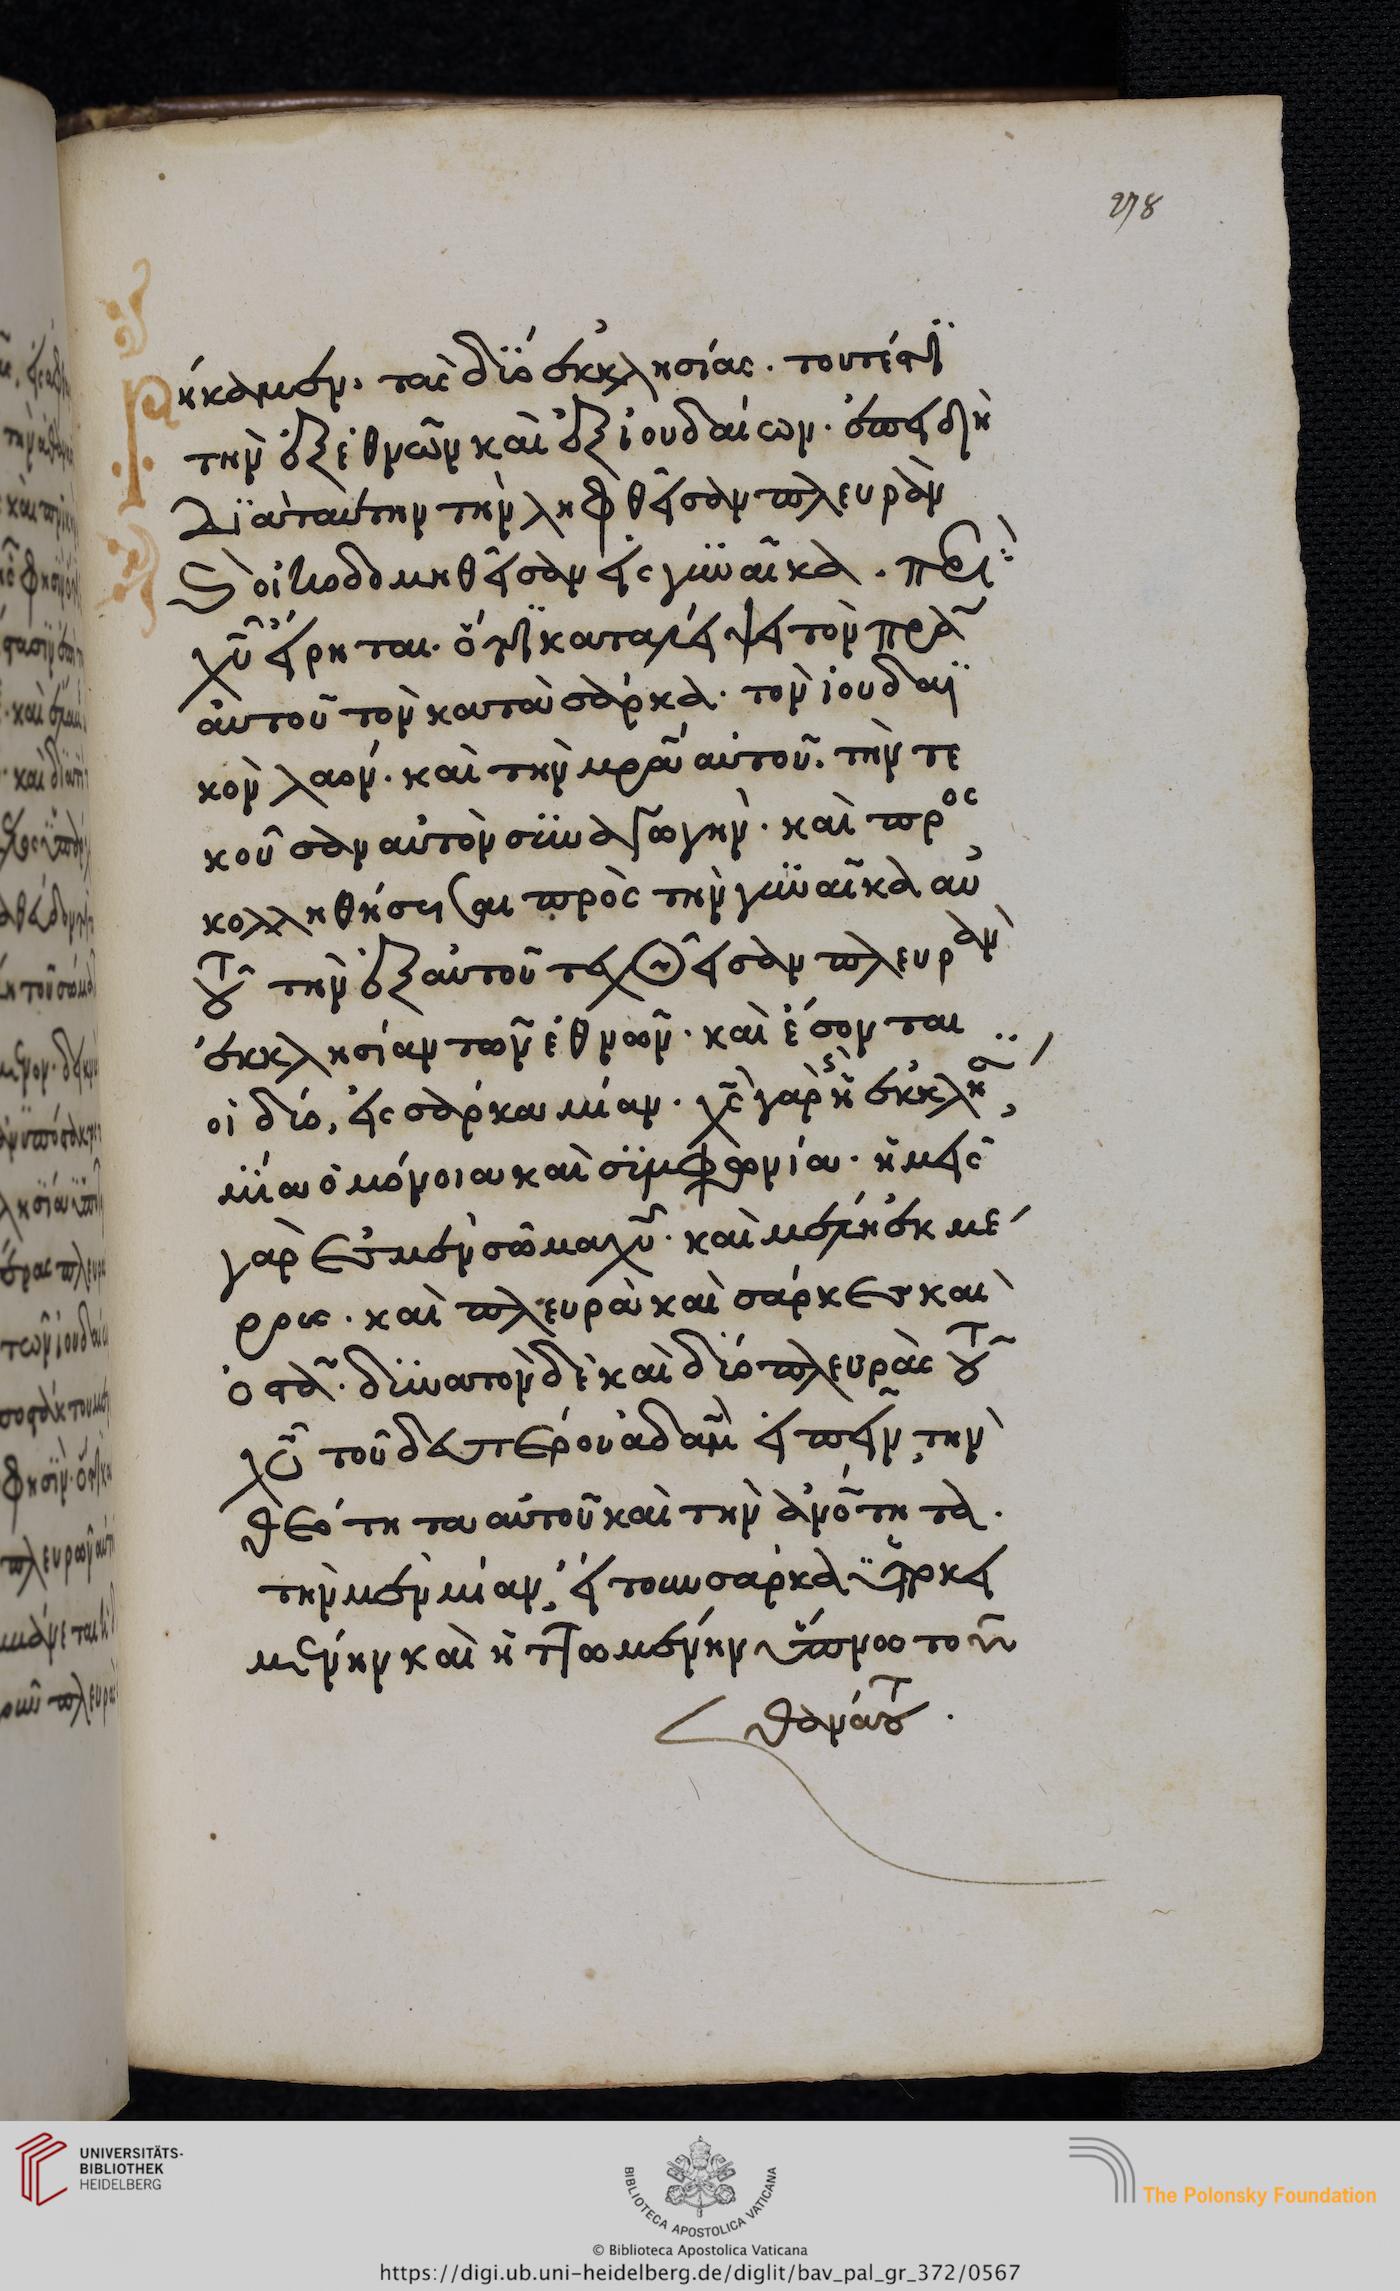 278
ήκαμεν. τὰς δύο ἐκκλησίας. τουτέστι
τὴν ἐξ ἐθνῶν καὶ ἐξ ἰουδαίων. ἐπειδὴ
διὰ ταύτην τὴν ληφθεῖσαν πλευρὰν
οἰκοδομηθεῖσαν εἰς γυναῖκα. περὶ
χῦ εἴρηται. ὅτι καταλείψει τὸν πρᾶ
αὐτοῦ τὸν κατὰ σάρκα. τὸν ἰουδαϊ
κὸν λαόν. καὶ τὴν μρᾶ αὐτοῦ. τὴν τε
κοῦσαν αὐτὸν συναγωγήν. καὶ προς
κολληθήσεται πρὸς τὴν γυναῖκα αὐ
τοῦ τὴν ἐξ αὐτοῦ πλευρὰν
ἐκκλησίαν τῶν ἐθνῶν. καὶ ἔσονται
οἱ δύο, εἰς σάρκα μίαν. χς γὰρ καὶ ἡ ἐκκλησία,
μία ὁμόνοια καὶ συμφωνία. ἡμεῖς
γὰρ ἐσμὲν σῶμα χῦ. καὶ μέλη ἐκ μέ
ρους. καὶ πλευρὰ καὶ σάρκες καὶ
ὀστᾶ. δυνατὸν δὲ καὶ δύο πλευρὰς τοῦ
χῦ τοῦ δευτέρου ἀδὰμ εἰπεῖν, τὴν
θεότητα αὐτοῦ καὶ τὴν ἀνότητα.
τὴν μὲν μίαν, εἴτουν σάρκα
μένην καὶ ἡττωμένην ὕπνω τοῦ
θανάτου.
UNIVERSITÄTS-
BIBLIOTHEK
HEIDELBERG
BIBLIOTECA APOSTOLICA VATICANA
© Biblioteca Apostolica Vaticana
The Polonsky Foundation
https://digi.ub.uni-heidelberg.de/diglit/bav_pal_gr_372/0567